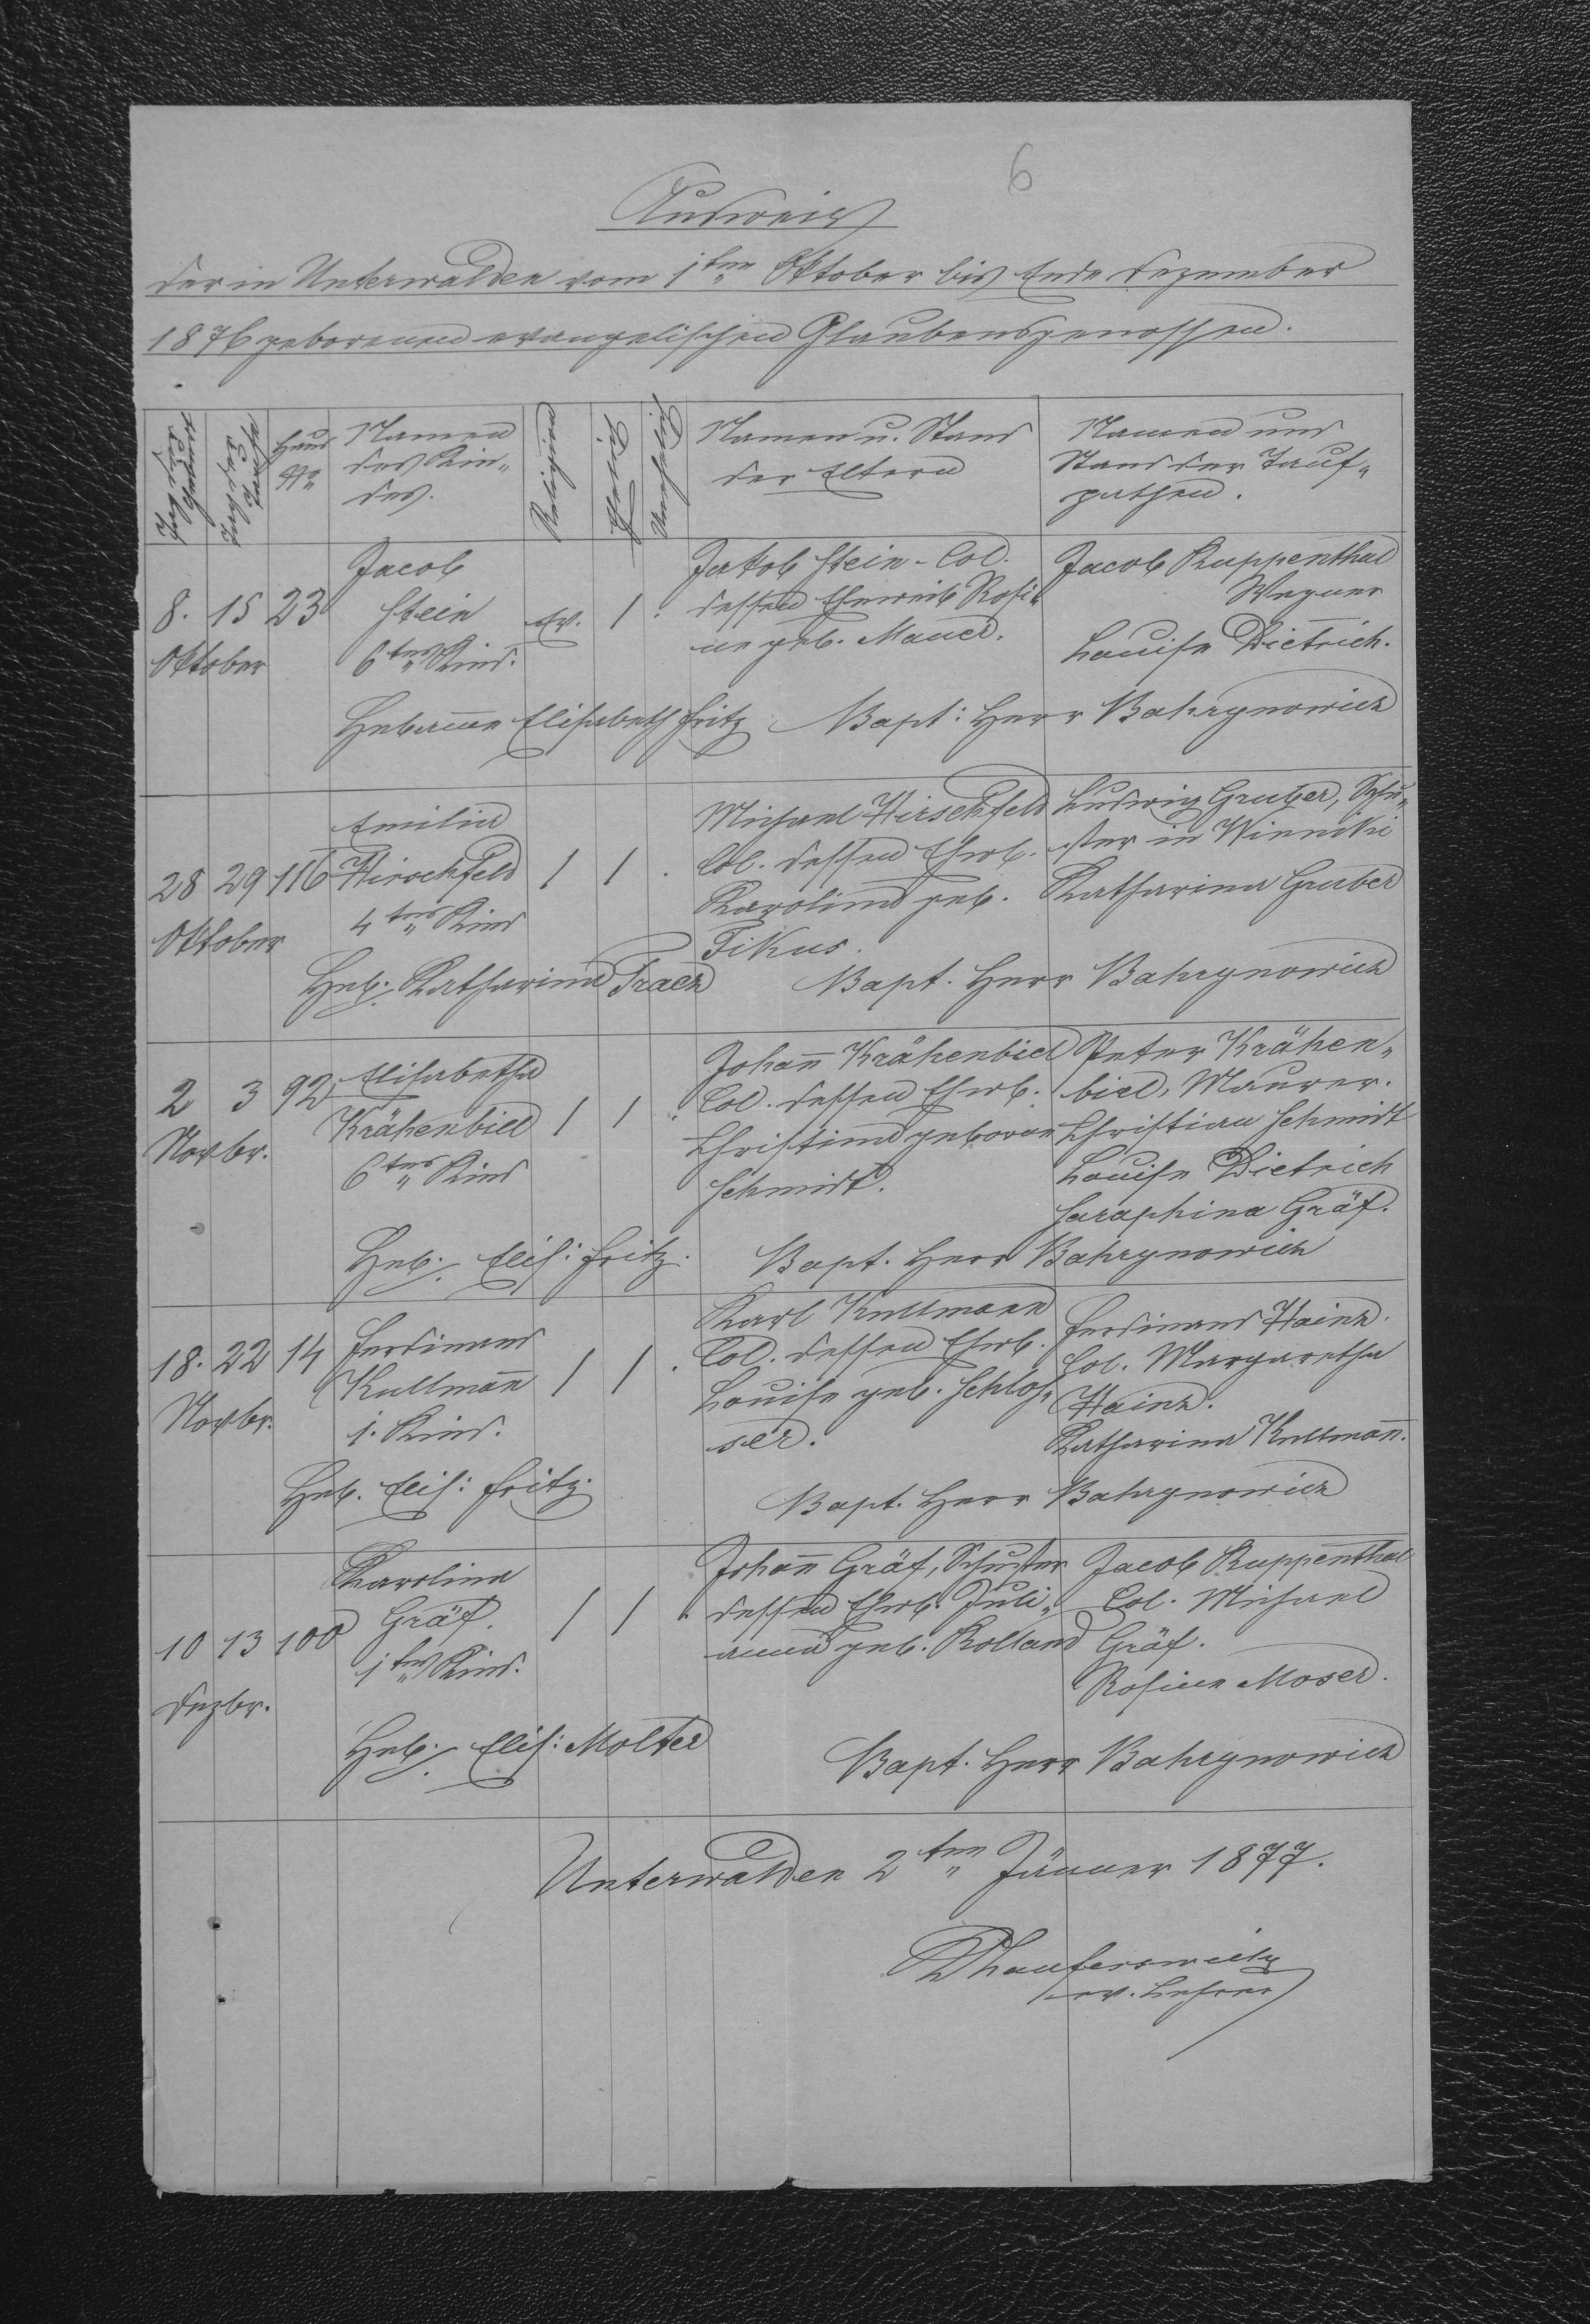 6
Ausweis
der in Unterwalden vom 1ten Oktober bis Ende Dezember
1876 geborenen evangelischen Glaubensgenossen.
Tag der Geburt
Tag der Taufe
Haus No
Namen des Kin„
des.
Religion
Ehelich
Unehelich
Namen u. Stand
der Eltern
Namen und
Stand der Tauf„
pathen.
8. 15 23
Oktober
Jacob
Stein
6tes Kind.
Ev. 1 .
Jakob Stein - Col.
dessen Eheweib Rosi„
ne geb. Mauer.
Jacob Ruppenthal
Wagner
Louise Dietrich.
Hebamme Elisabeth Fritz Bapt: Herr Bahrynowicz
28 29 116
Oktober
Emilia
Hirschfeld
4tes Kind
/ / .
Michael Hirschfeld
Col. dessen Ehwb.
Karolina geb.
Fikus.
Ludwig Gruber, Schu„
ster in Winniki
Katharina Gruber
Heb. Katharina Trach Bapt. Herr Bahrynowicz
2 3 92
Novbr.
Elisabetha
Krähenbiel
6tes Kind
/ / .
Johann Krähenbiel
Col. dessen Ehwb.
Christina geborne
Schmidt.
Peter Krähen„
biel, Maurer.
Christian Schmidt
Louise Dietrich
Saraphina Gräf.
Heb. Elis: Fritz. Bapt. Herr Bahrynowicz
18. 22 14
Novbr.
Ferdinand
Kullmann
1. Kind.
/ / .
Karl Kullmann
Col. dessen Ehwb.
Louise geb. Schlos„
ser.
Ferdinand Hainz.
Col. Margaretha
Hainz.
Katharina Kullmann.
Heb. Elis: Fritz. Bapt. Herr Bahrynowicz
10 13 100
Dezbr.
Karolina
Gräf.
1tes Kind.
/ / .
Johann Gräf, Schuster
dessen Ehwb. Juli„
anna geb. Rolland
Jacob Ruppenthal
Col. Michael
Gräf.
Rosina Moser.
Heb. Elis: Molter Bapt. Herr Bahrynowicz
Unterwalden 2ten Jänner 1877.
ev. Lehrer